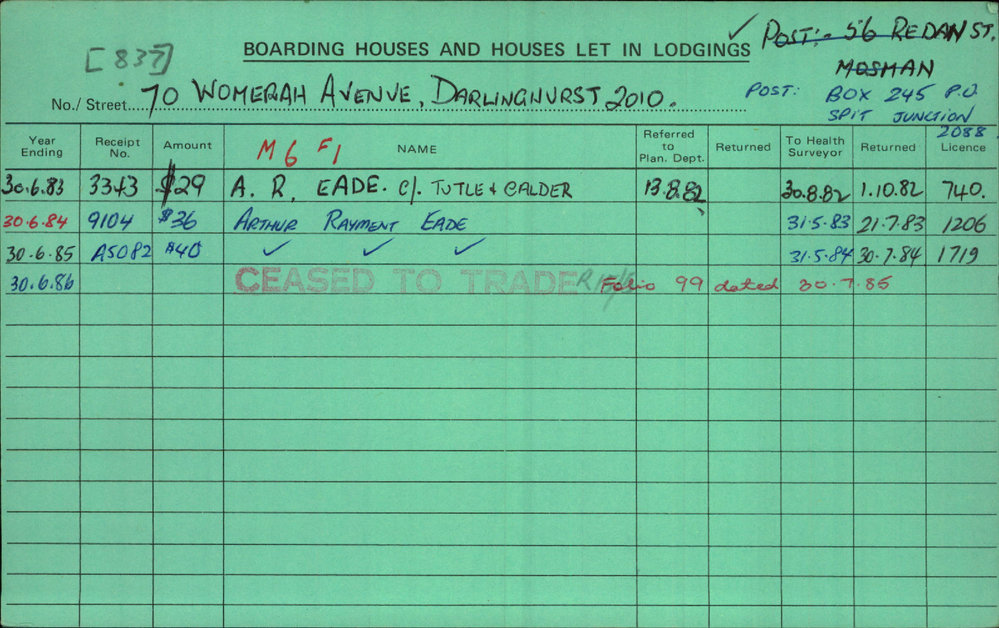 [837]
BOARDING HOUSES AND HOUSES LET IN LODGINGS
✓ POST:- 56 REDAN ST.
MOSMAN
No./ Street 70 WOMERAH AVENUE, DARLINGHURST 2010.
POST: BOX 245 P.O.
SPIT JUNCTION
2088
Year Ending Receipt No. Amount M 6 F1 NAME Referred to Plan. Dept. Returned To Health Surveyor Returned Licence
30.6.83 3343 $29 A. R. EADE. C/. TUTLE & CALDER 13.8.82 30.8.82 1.10.82 740.
30.6.84 9104 $36 ARTHUR RAYMENT EADE 31.5.83 21.7.83 1206
30.6.85 A5082 $40 ✓ ✓ ✓ 31.5.84 30.7.84 1719
30.6.86 CEASED TO TRADE Folio 99 dated 30.7.85